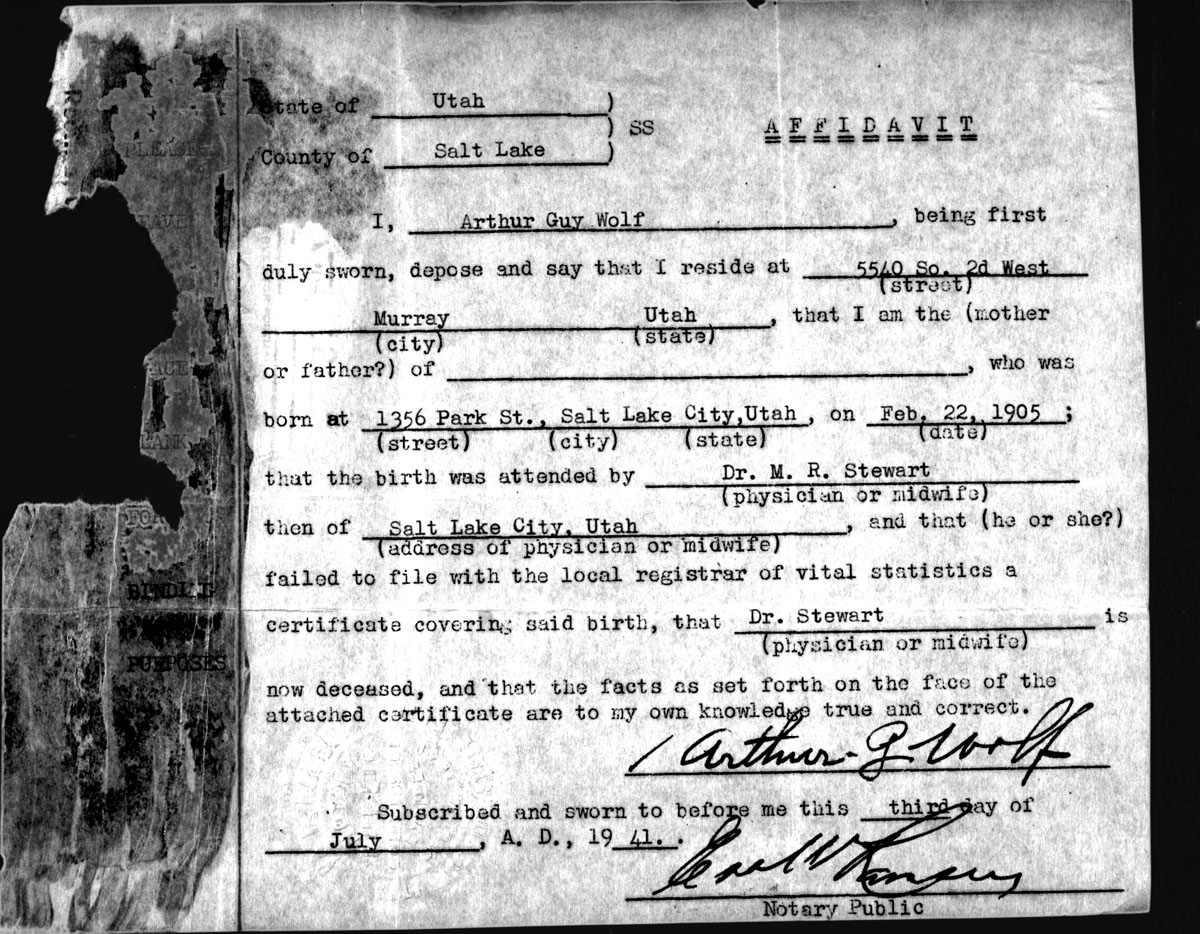 State of Utah )
) SS AFFIDAVIT
County of Salt Lake )
I, Arthur Guy Wolf, being first
duly sworn, depose and say that I reside at 5540 So. 2d West
(street)
Murray Utah, that I am the (mother
(city) (state)
or father?) of , who was
born at 1356 Park St., Salt Lake City, Utah, on Feb. 22, 1905;
(street) (city) (state) (date)
that the birth was attended by Dr. M. R. Stewart
(physician or midwife)
then of Salt Lake City, Utah, and that (he or she?)
(address of physician or midwife)
failed to file with the local registrar of vital statistics a
certificate covering said birth, that Dr. Stewart is
(physician or midwife)
now deceased, and that the facts as set forth on the face of the
attached certificate are to my own knowledge true and correct.
Arthur G Wolf
Subscribed and sworn to before me this third day of
July, A. D., 19 41..
Notary Public
PLEASE
BINDING
PURPOSES